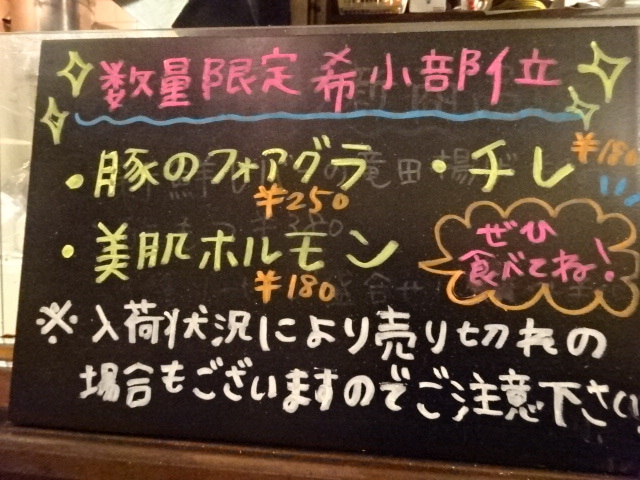 数量限定 希小部位
・豚のフォアグラ ¥250
・チレ ¥180
・美肌ホルモン ¥180
ぜひ
食べてね!
※入荷状況により売り切れの
場合もございますのでご注意下さい!